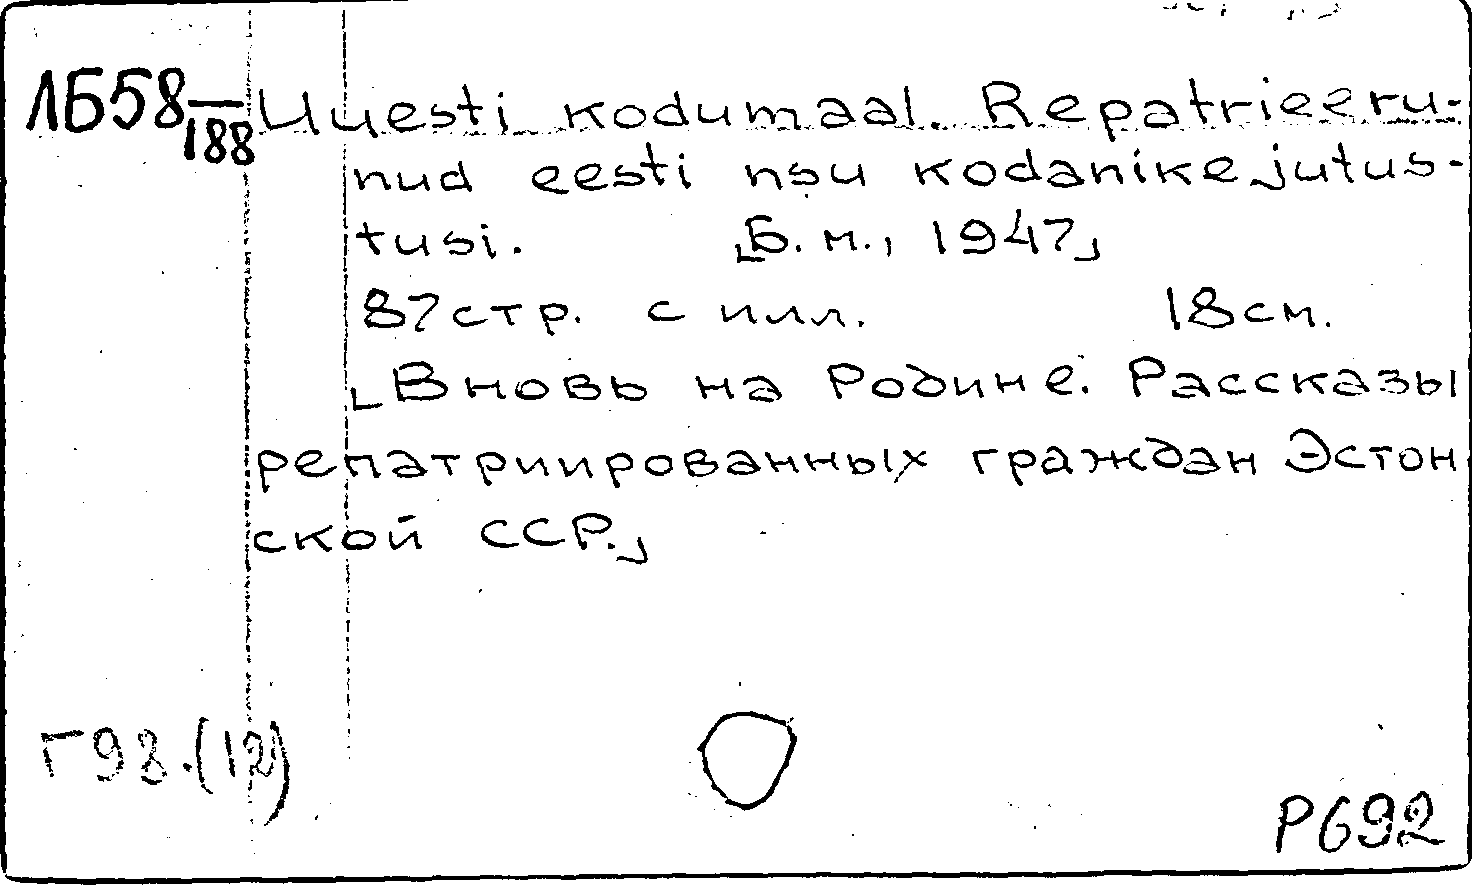 ЛБ58/188 Uuesti kodumaal. Repatrieeru-
nud eesti nsu kodanike jutus-
tusi. [Б. м., 1947]
87стр. с илл. 18см.
[Вновь на Родине. Рассказы
репатриированных граждан Эстон
ской ССР.]
Г98.(12)
Р692